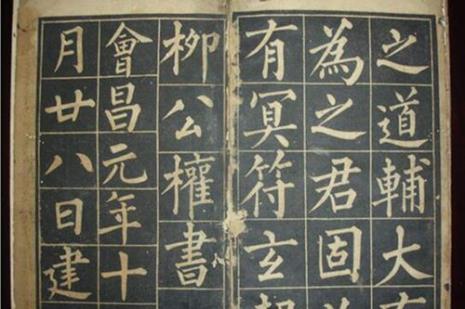 之道輔大有
為之君固
有冥符玄
柳公權書
會昌元年十
月廿八日建